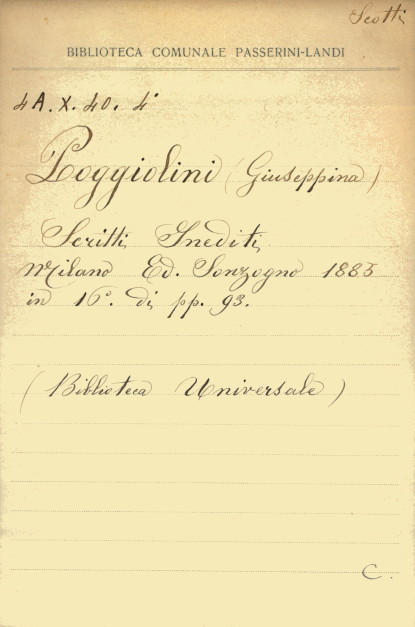 Scotti
BIBLIOTECA COMUNALE PASSERINI-LANDI
4A.X.40.4°
Poggiolini (Giuseppina)
Scritti Inediti
Milano Ed. Sonzogno 1885
in 16°. di pp. 93.
(Biblioteca Universale)
C.